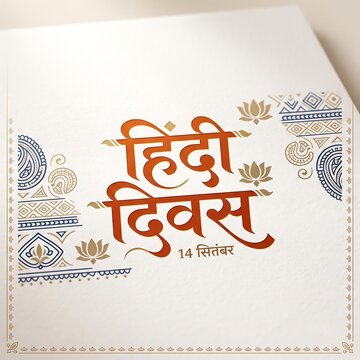 हिंदी
दिवस
14 सितंबर